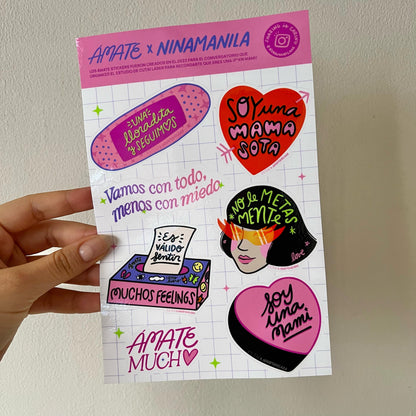 AMATE x NINAMANILA
LOS AMATE STICKERS FUERON CREADOS EN EL 2022 PARA EL CONVERSATORIO QUE
ORGANIZÓ EL ESTUDIO DE
PARA RECORDARTE QUE ERES UNA
MAMI
UNA
lloradita
y SEGUIMOS
SOY una
MAMA
SOTA
Vamos con todo,
menos con miedo
NO te METAS
MENTE
love
ES
VÁLIDO
Sentir
MUCHOS FEELINGS
SOY
una
mami
ÁMATE
MUCHO